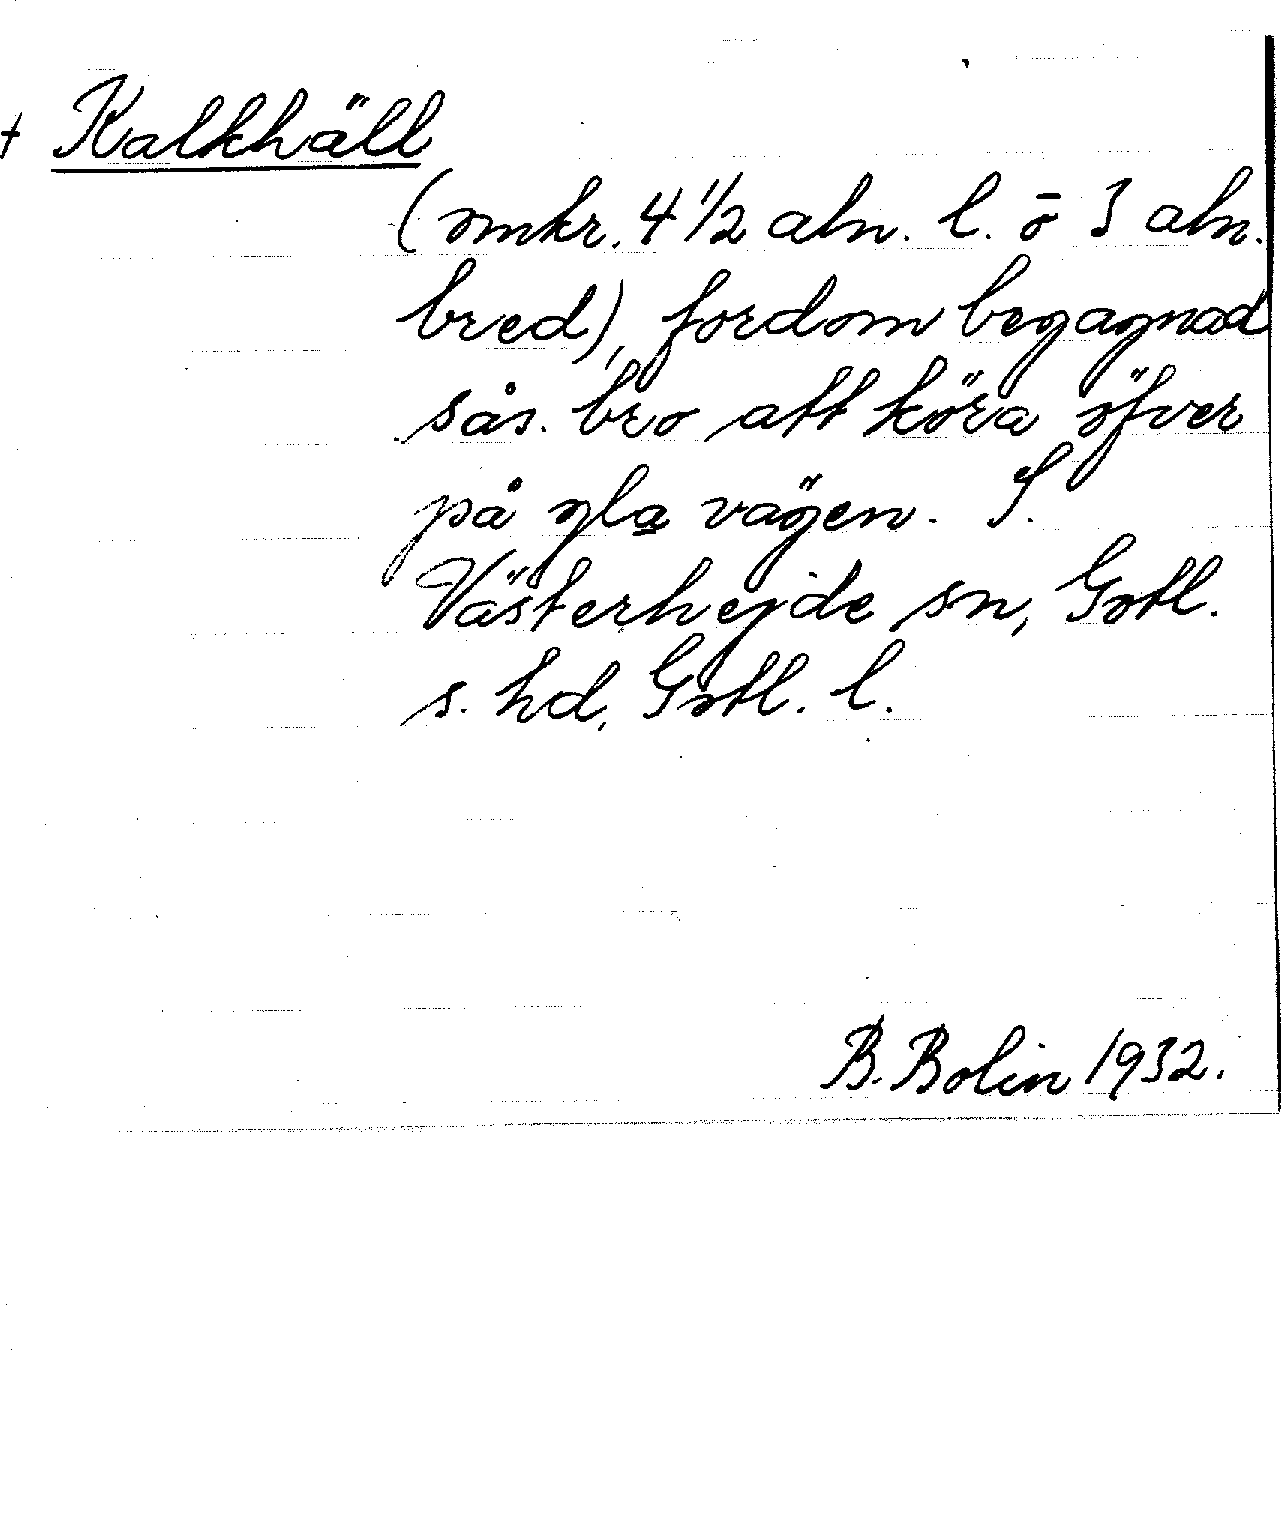 + Kalkhäll
(omkr. 4 1/2 aln. l. ō 3 aln.
bred), fordom begagnad
sås. bro att köra öfver
på gla vägen. S.
Västerhejde sn, Gotl.
s. hd, Gotl. l.
B. Bolin 1932.